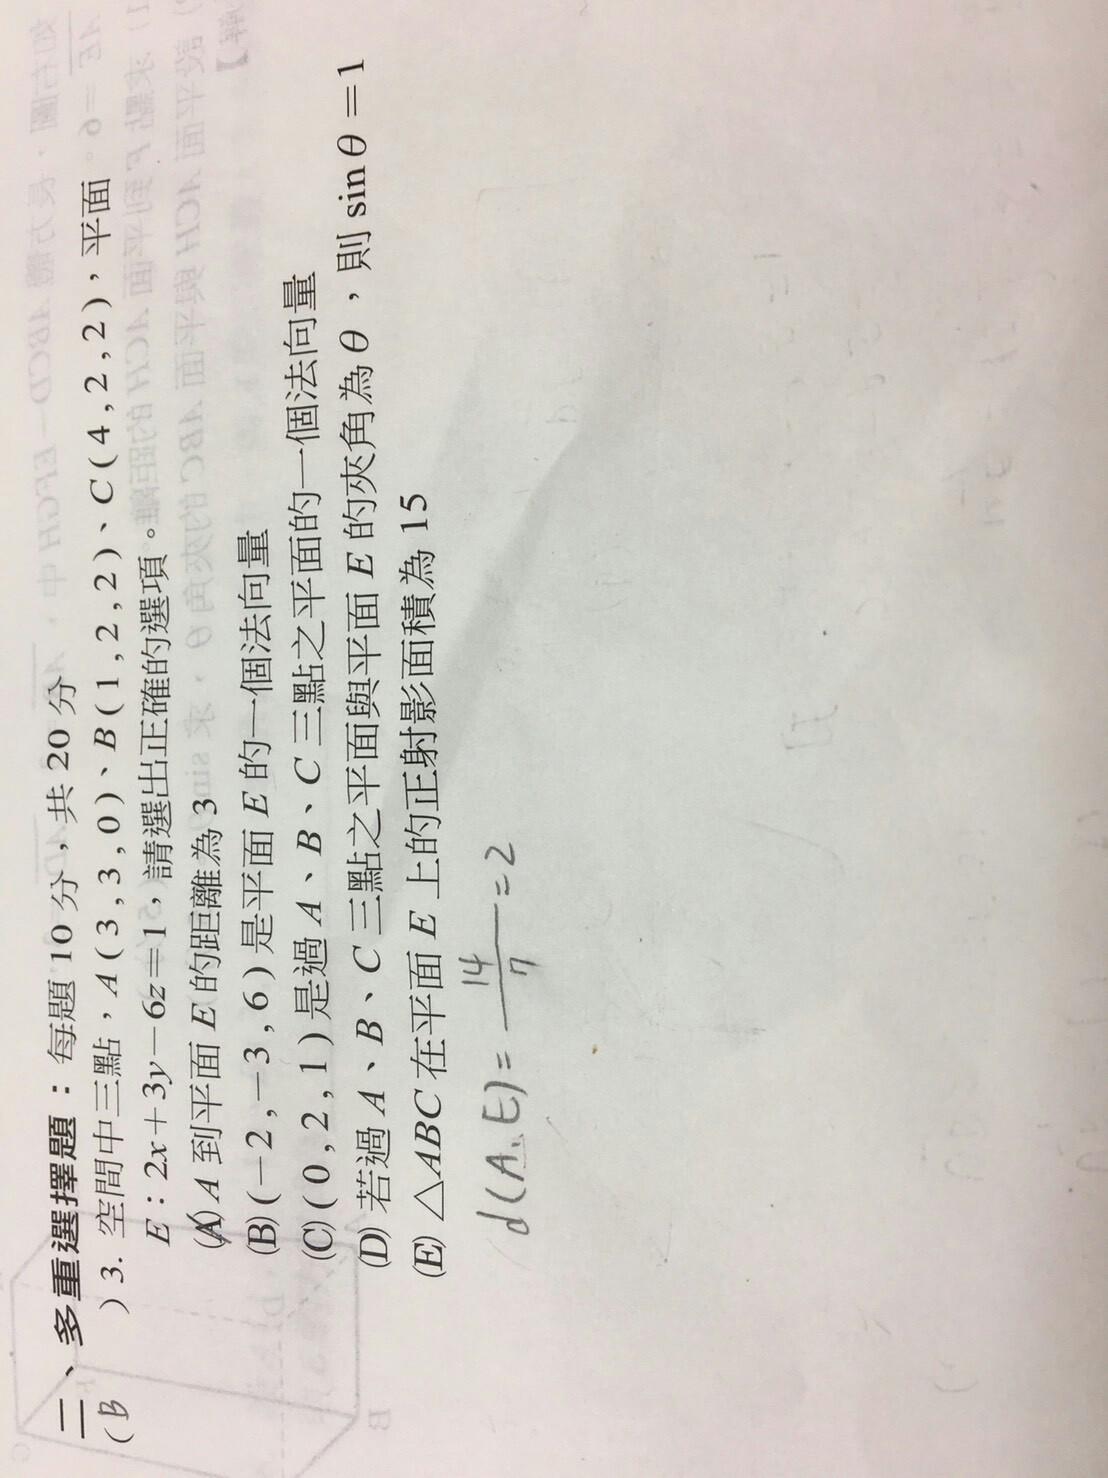 二、多重選擇題：每題 10 分，共 20 分
( B ) 3. 空間中三點，A ( 3 , 3 , 0 )、B ( 1 , 2 , 2 )、C ( 4 , 2 , 2 )，平面
E : 2x＋3y－6z＝1，請選出正確的選項。
(A) A 到平面 E 的距離為 3
(B) (－2 ,－3 , 6 ) 是平面 E 的一個法向量
(C) ( 0 , 2 , 1 ) 是過 A、B、C 三點之平面的一個法向量
(D) 若過 A、B、C 三點之平面與平面 E 的夾角為 θ，則 sin θ＝1
(E) △ABC 在平面 E 上的正射影面積為 15
d(A,E) = 14/7 = 2